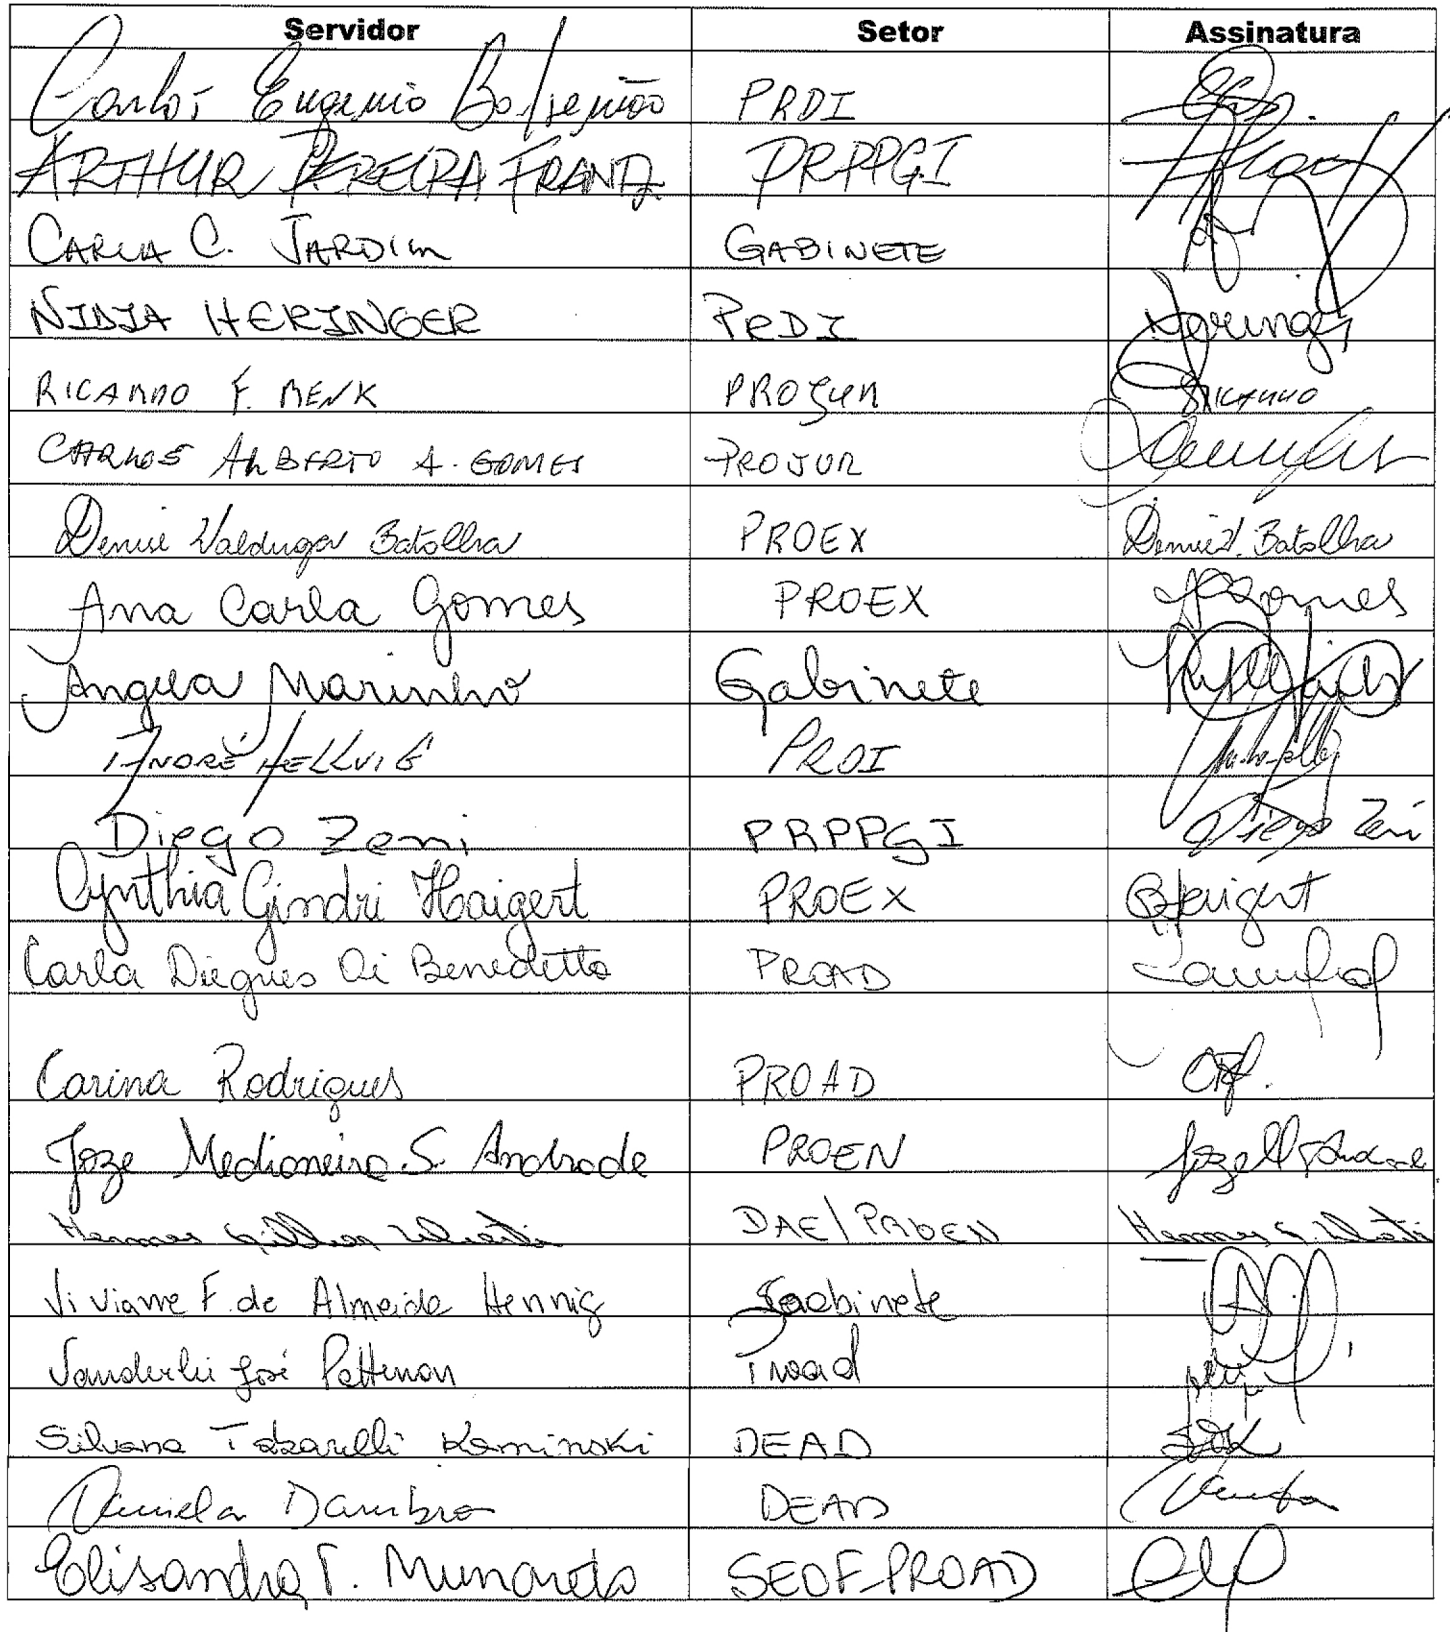 Servidor Setor Assinatura
Carlos Eugenio Balsemão PRDI
ARTHUR PEREIRA FRANTZ PRPPGI
CARLA C. JARDIM GABINETE
NIDIA HERINGER PRDI Heringer
RICARDO F. MENK PROJUR RICARDO
CARLOS ALBERTO A. GOMES PROJUR
Denise Valduga Batalha PROEX Denise V. Batalha
Ana Carla Gomes PROEX AGomes
Angela Marinho Gabinete
ANDRÉ HELLVIG PRDI
Diego Zeni PRPPGI Diego Zeni
Cynthia Gindri Haigert PROEX Haigert
Carla Diegues Di Benedetto PROAD
Carina Rodrigues PROAD
Joze Medianeira S. Andrade PROEN
Hermes DAE/PROEN Hermes
Viviane F. de Almeida Hennig Gabinete
Vanderlei José Pettenon Proad
Silvana Tabarelli Kaminski DEAD STK
Daniela Dambro DEAD
Elisandra T. Munareto SEOF-PROAD